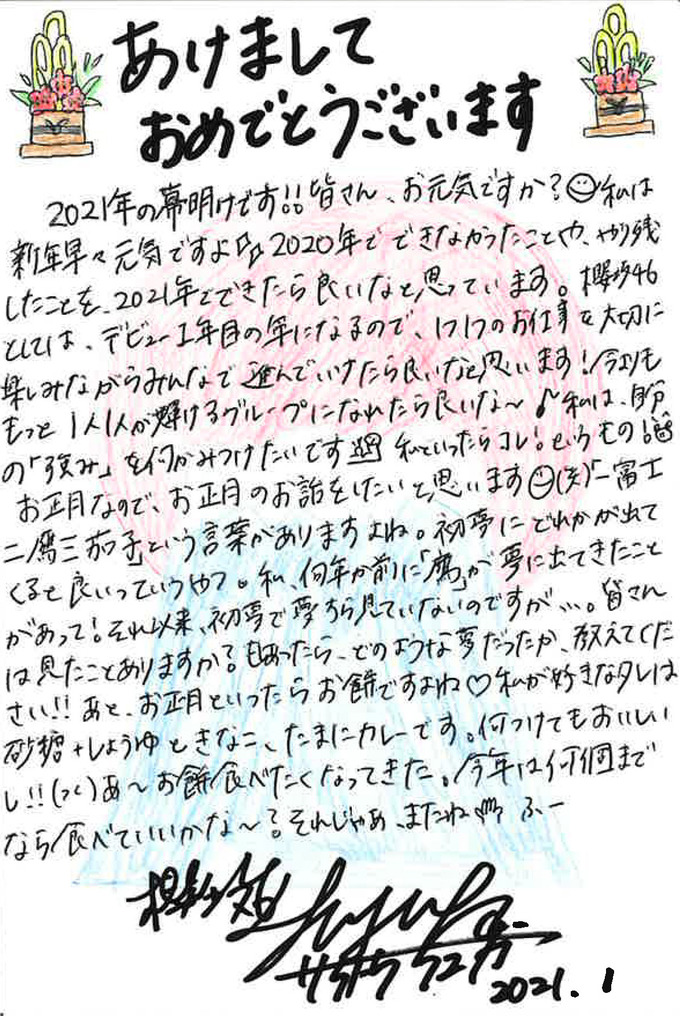 あけまして
おめでとうございます
2021年の幕明けです!!皆さん、お元気ですか?私は
新年早々元気ですよ 2020年でできなかったことや、やり残
したことを、2021年でできたら良いなと思っています。櫻坂46
としては、デビュー1年目の年になるので、1つ1つのお仕事を大切に
楽しみながらみんなで進んでいけたら良いなと思います!今よりも
もっと1人1人が輝けるグループになれたら良いな〜♪私は、自分
の「強み」を何かみつけたいです 私といったらコレ!というもの!
お正月なので、お正月のお話をしたいと思います(笑)「一富士
二鷹三茄子」という言葉がありますよね。初夢にどれかが出て
くると良いっていうやつ。私、何年か前に「鷹」が夢に出てきたこと
があって!それ以来、初夢で夢すら見ていないのですが…。皆さん
は見たことありますか?もあったら、どのような夢だったか、教えてくだ
さい!!あと、お正月といったらお餅ですよね♡私が好きなタレは
砂糖+しょうゆときなこ、たまにカレーです。何つけてもおいしい
し!!(つく)あ〜お餅食べたくなってきた。今年は何個まで
なら食べていいかな〜?それじゃあ、またね ふー
2021.1